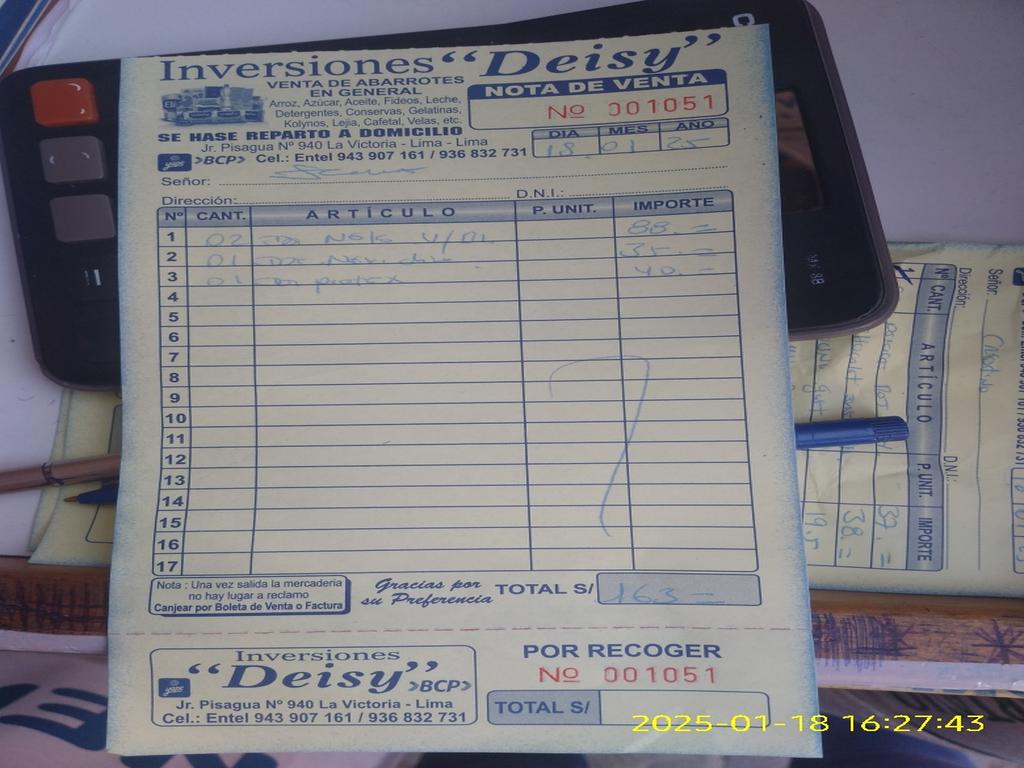 Inversiones "Deisy"
VENTA DE ABARROTES
EN GENERAL
Arroz, Azúcar, Aceite, Fideos, Leche,
Detergentes, Conservas, Gelatinas,
Kolynos, Lejia, Cafetal, Velas, etc.
SE HASE REPARTO A DOMICILIO
Jr. Pisagua Nº 940 La Victoria - Lima - Lima
>BCP> Cel.: Entel 943 907 161 / 936 832 731
NOTA DE VENTA
Nº 001051
DIA MES AÑO
18 01 25
Señor:
Dirección: D.N.I.:
Nº CANT. ARTÍCULO P. UNIT. IMPORTE
1 02 88.=
2 01 35.=
3 01 40.=
4
5
6
7
8
9
10
11
12
13
14
15
16
17
Nota : Una vez salida la mercaderia
no hay lugar a reclamo
Canjear por Boleta de Venta o Factura
Gracias por
su Preferencia
TOTAL S/ 163.=
Inversiones
"Deisy" >BCP>
Jr. Pisagua Nº 940 La Victoria - Lima
Cel.: Entel 943 907 161 / 936 832 731
POR RECOGER
Nº 001051
TOTAL S/
Señor:
Dirección:
D.N.I.:
Nº CANT. ARTÍCULO P.UNIT. IMPORTE
38.=
19.5
2025-01-18 16:27:43